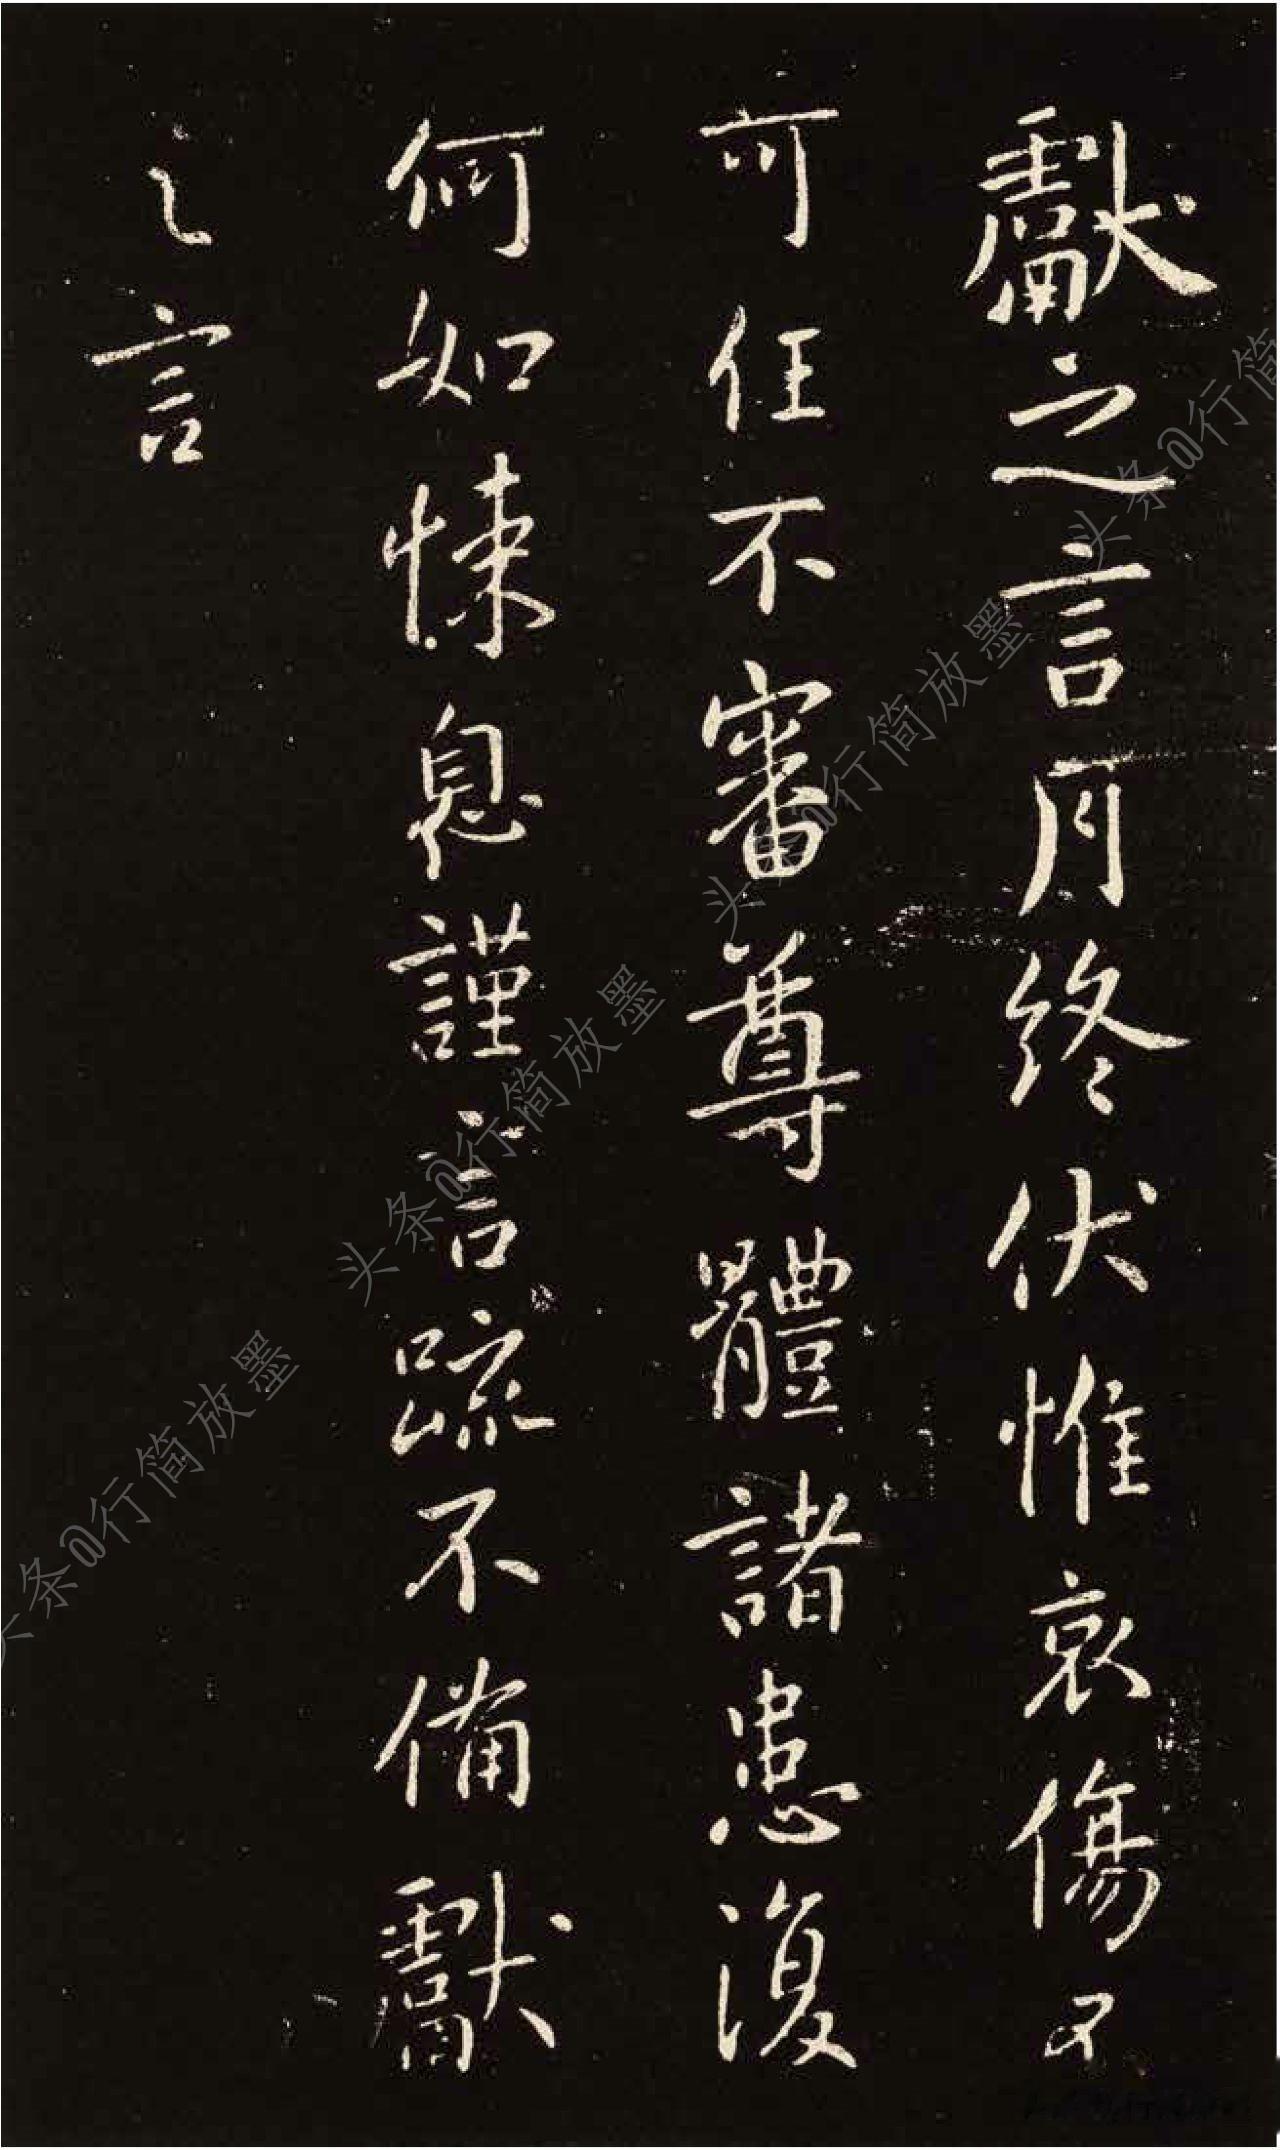 獻之言月終伏惟哀傷不
可任不審尊體諸患復
何如悚息謹言疏不備獻
之言
头条@行简放墨
头条@行简放墨
头条@行简放墨
头条@行简